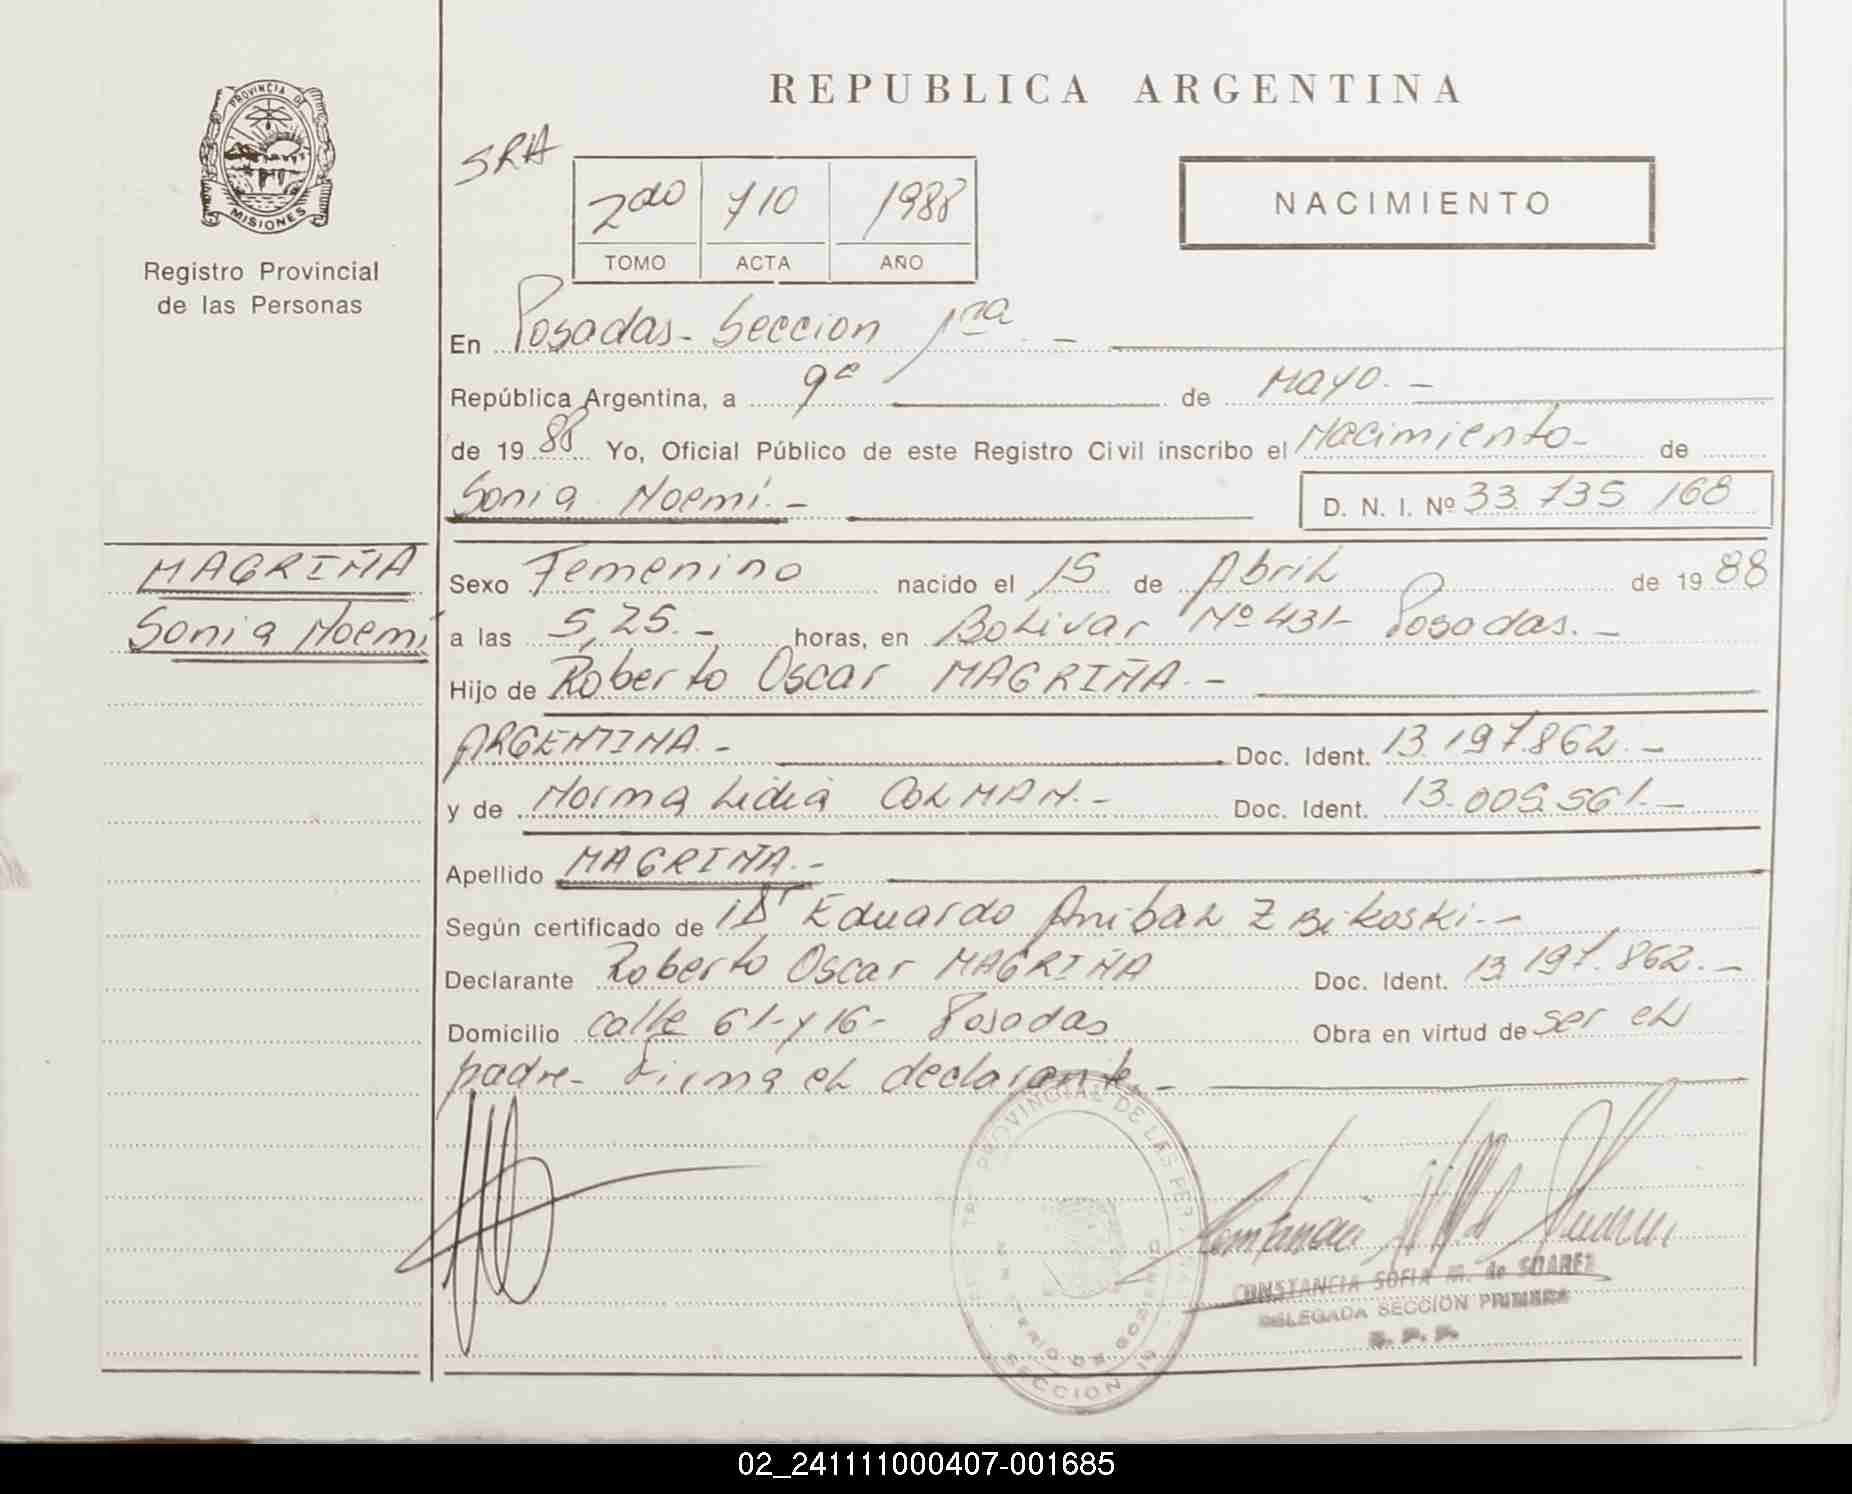 PROVINCIA DE
MISIONES
Registro Provincial
de las Personas
REPUBLICA ARGENTINA
SRA
2do 710 1988
TOMO ACTA AÑO
NACIMIENTO
En Posadas - Seccion 1ra. -
República Argentina, a 9 de Mayo. -
de 1988 Yo, Oficial Público de este Registro Civil inscribo el Nacimiento - de
Sonia Noemí. - D. N. I. Nº 33.735.168
MAGRIÑA
Sonia Noemi
Sexo Femenino nacido el 15 de Abril de 1988
a las 5,25. - horas, en Bolivar Nº 431 - Posadas. -
Hijo de Roberto Oscar MAGRIÑA. -
ARGENTINA. - Doc. Ident. 13.197.862. -
y de Norma Lidia COLMAN. - Doc. Ident. 13.005.561. -
Apellido MAGRIÑA. -
Según certificado de Dr Eduardo Anibal Zbikoski. -
Declarante Roberto Oscar MAGRIÑA Doc. Ident. 13.197.862. -
Domicilio calle 61 - y 16 - Posadas Obra en virtud de ser el
padre - Firma el declarante. -
PROVINCIAL DE LAS PERSONAS
MINISTERIO DE GOBIERNO
SECCION 1ª
CONSTANCIA SOFIA M. de SUAREZ
DELEGADA SECCION PRIMERA
02_241111000407-001685